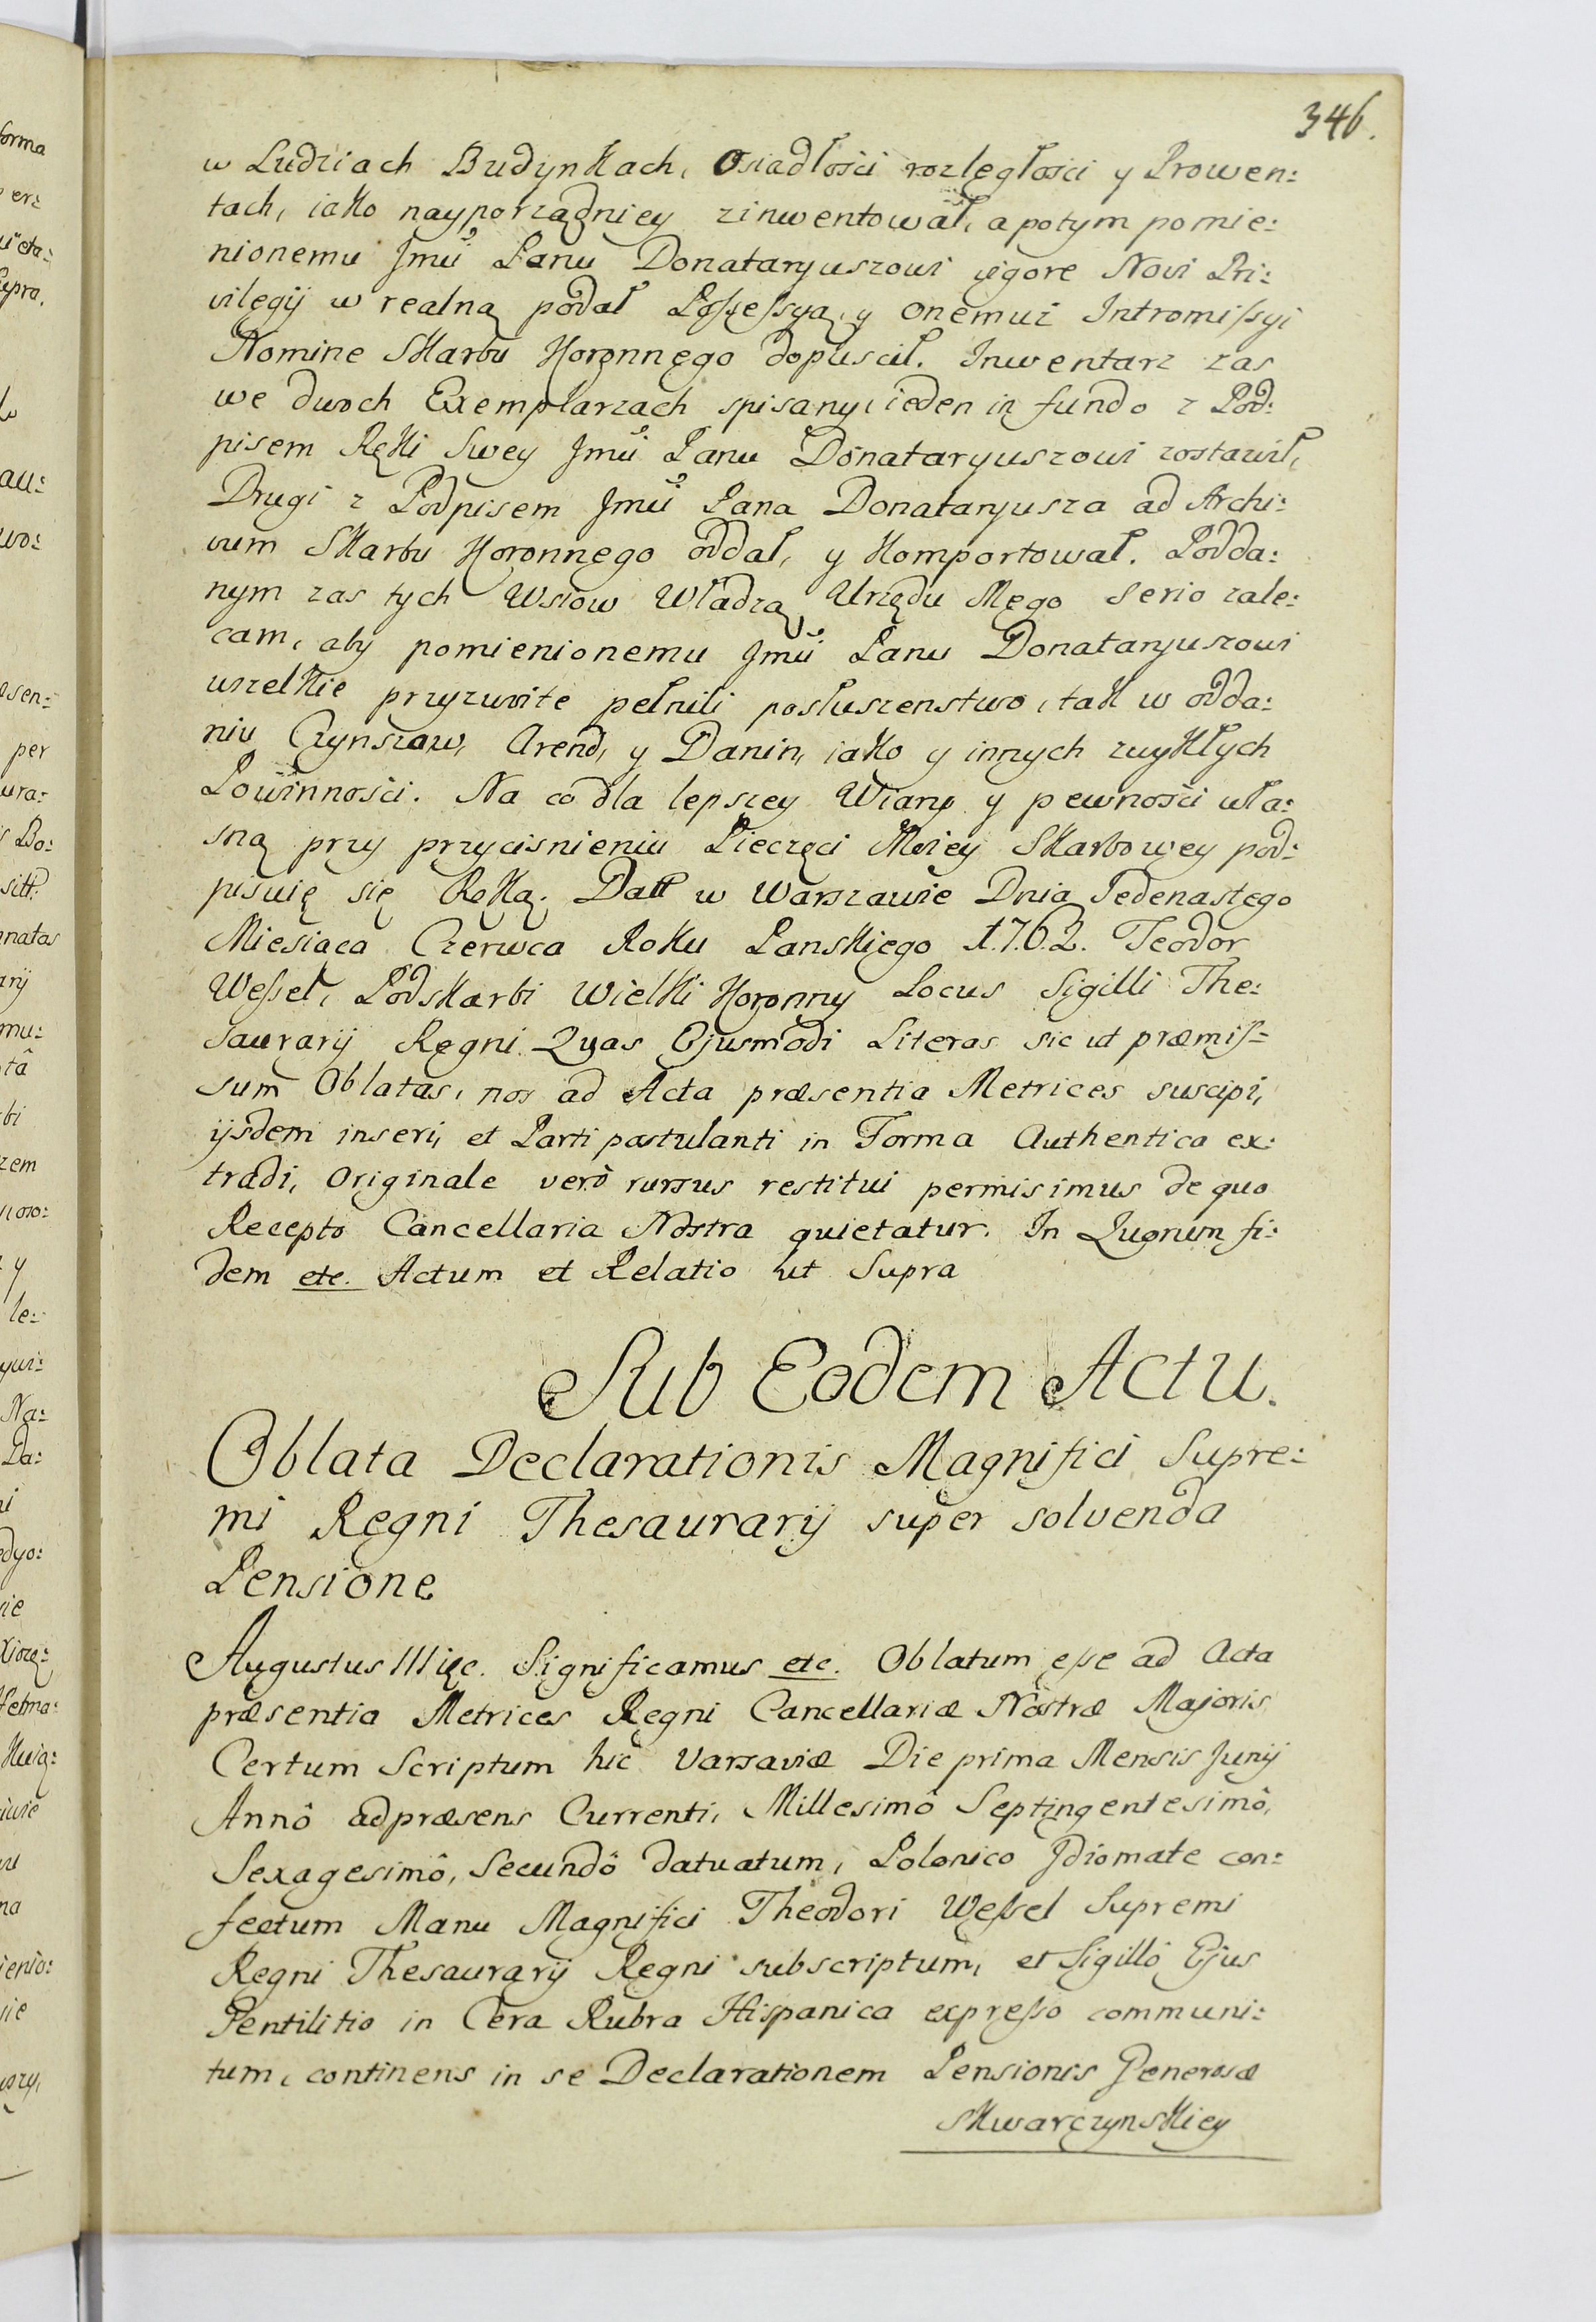 346.
w Ludziach Budynkach, Osiadłości rozległości y Prowen:
tach, iako nayporządniey zinwentował, a potym pomie:
nionemu Jmū Panu Donataryuszowi vigore Novi Pri:
vilegij w realną podał Possessyą, y onemuż Intromissyi
Nomine Skarbu Koronnego dopuscił. Inwentarz zas
we dwoch Exemplarzach spisany, ieden in fundo z Pod:
pisem Ręki Swey Jmū Panu Donataryuszowi zostawił,
Drugi z Podpisem Jmū Pana Donataryusza ad Archi:
vum Skarbu Koronnego oddał, y Komportował. Podda:
nym zas tych Wsiow Władzą Urzędu Mego Serio zale:
cam, aby pomienionemu Jmū Panu Donataryuszowi
wszelkie przyzwoite pełnili posłuszenstwo, tak w odda:
niu Czynszow, Arend, y Danin, iako y innych zwykłych
Powinności. Na co dla lepszey Wiary y pewności wła:
sną przy przycisnieniu Pieczęci Moiey Skarbowey pod:
pisuię się Ręką. Datt w Warszawie Dnia Jedenastego
Miesiąca Czerwca Roku Panskiego 1.7.6.2. Teodor
Wessel, Podskarbi Wielki Koronny Locus Sigilli The:
saurarij Regni. Quas Ejusmodi Literas sic ut præmis=
sum Oblatas, nos ad Acta præsentia Metrices suscipi,
ijsdem inseri, et Parti postulanti in Forma Authentica ex:
tradi, Originale verò rursus restitui permisimus de quo
Recepto Cancellaria Nostra quietatur. In Quorum fi:
dem etc. Actum et Relatio ut Supra
Sub Eodem Actu.
Oblata Declarationis Magnifici Supre:
mi Regni Thesaurarij super solvenda
Pensione
Augustus III etc. Significamus etc. Oblatum esse ad Acta
præsentia Metrices Regni Cancellariæ Nostræ Majoris
Certum Scriptum hic Varsaviæ Die prima Mensis Junij
Annô ad præsens Currenti, Millesimô Septingentesimô,
Sexagesimô, Secundô datuatum, Polonico Idiomate con:
fectum Manu Magnifici Theodori Wessel Supremi
Regni Thesaurarij Regni subscriptum, et Sigillô Ejus
Gentilitio in Cera Rubra Hispanica expresso communi:
tum, continens in se Declarationem Pensionis Generosæ
Skwarczynskiey